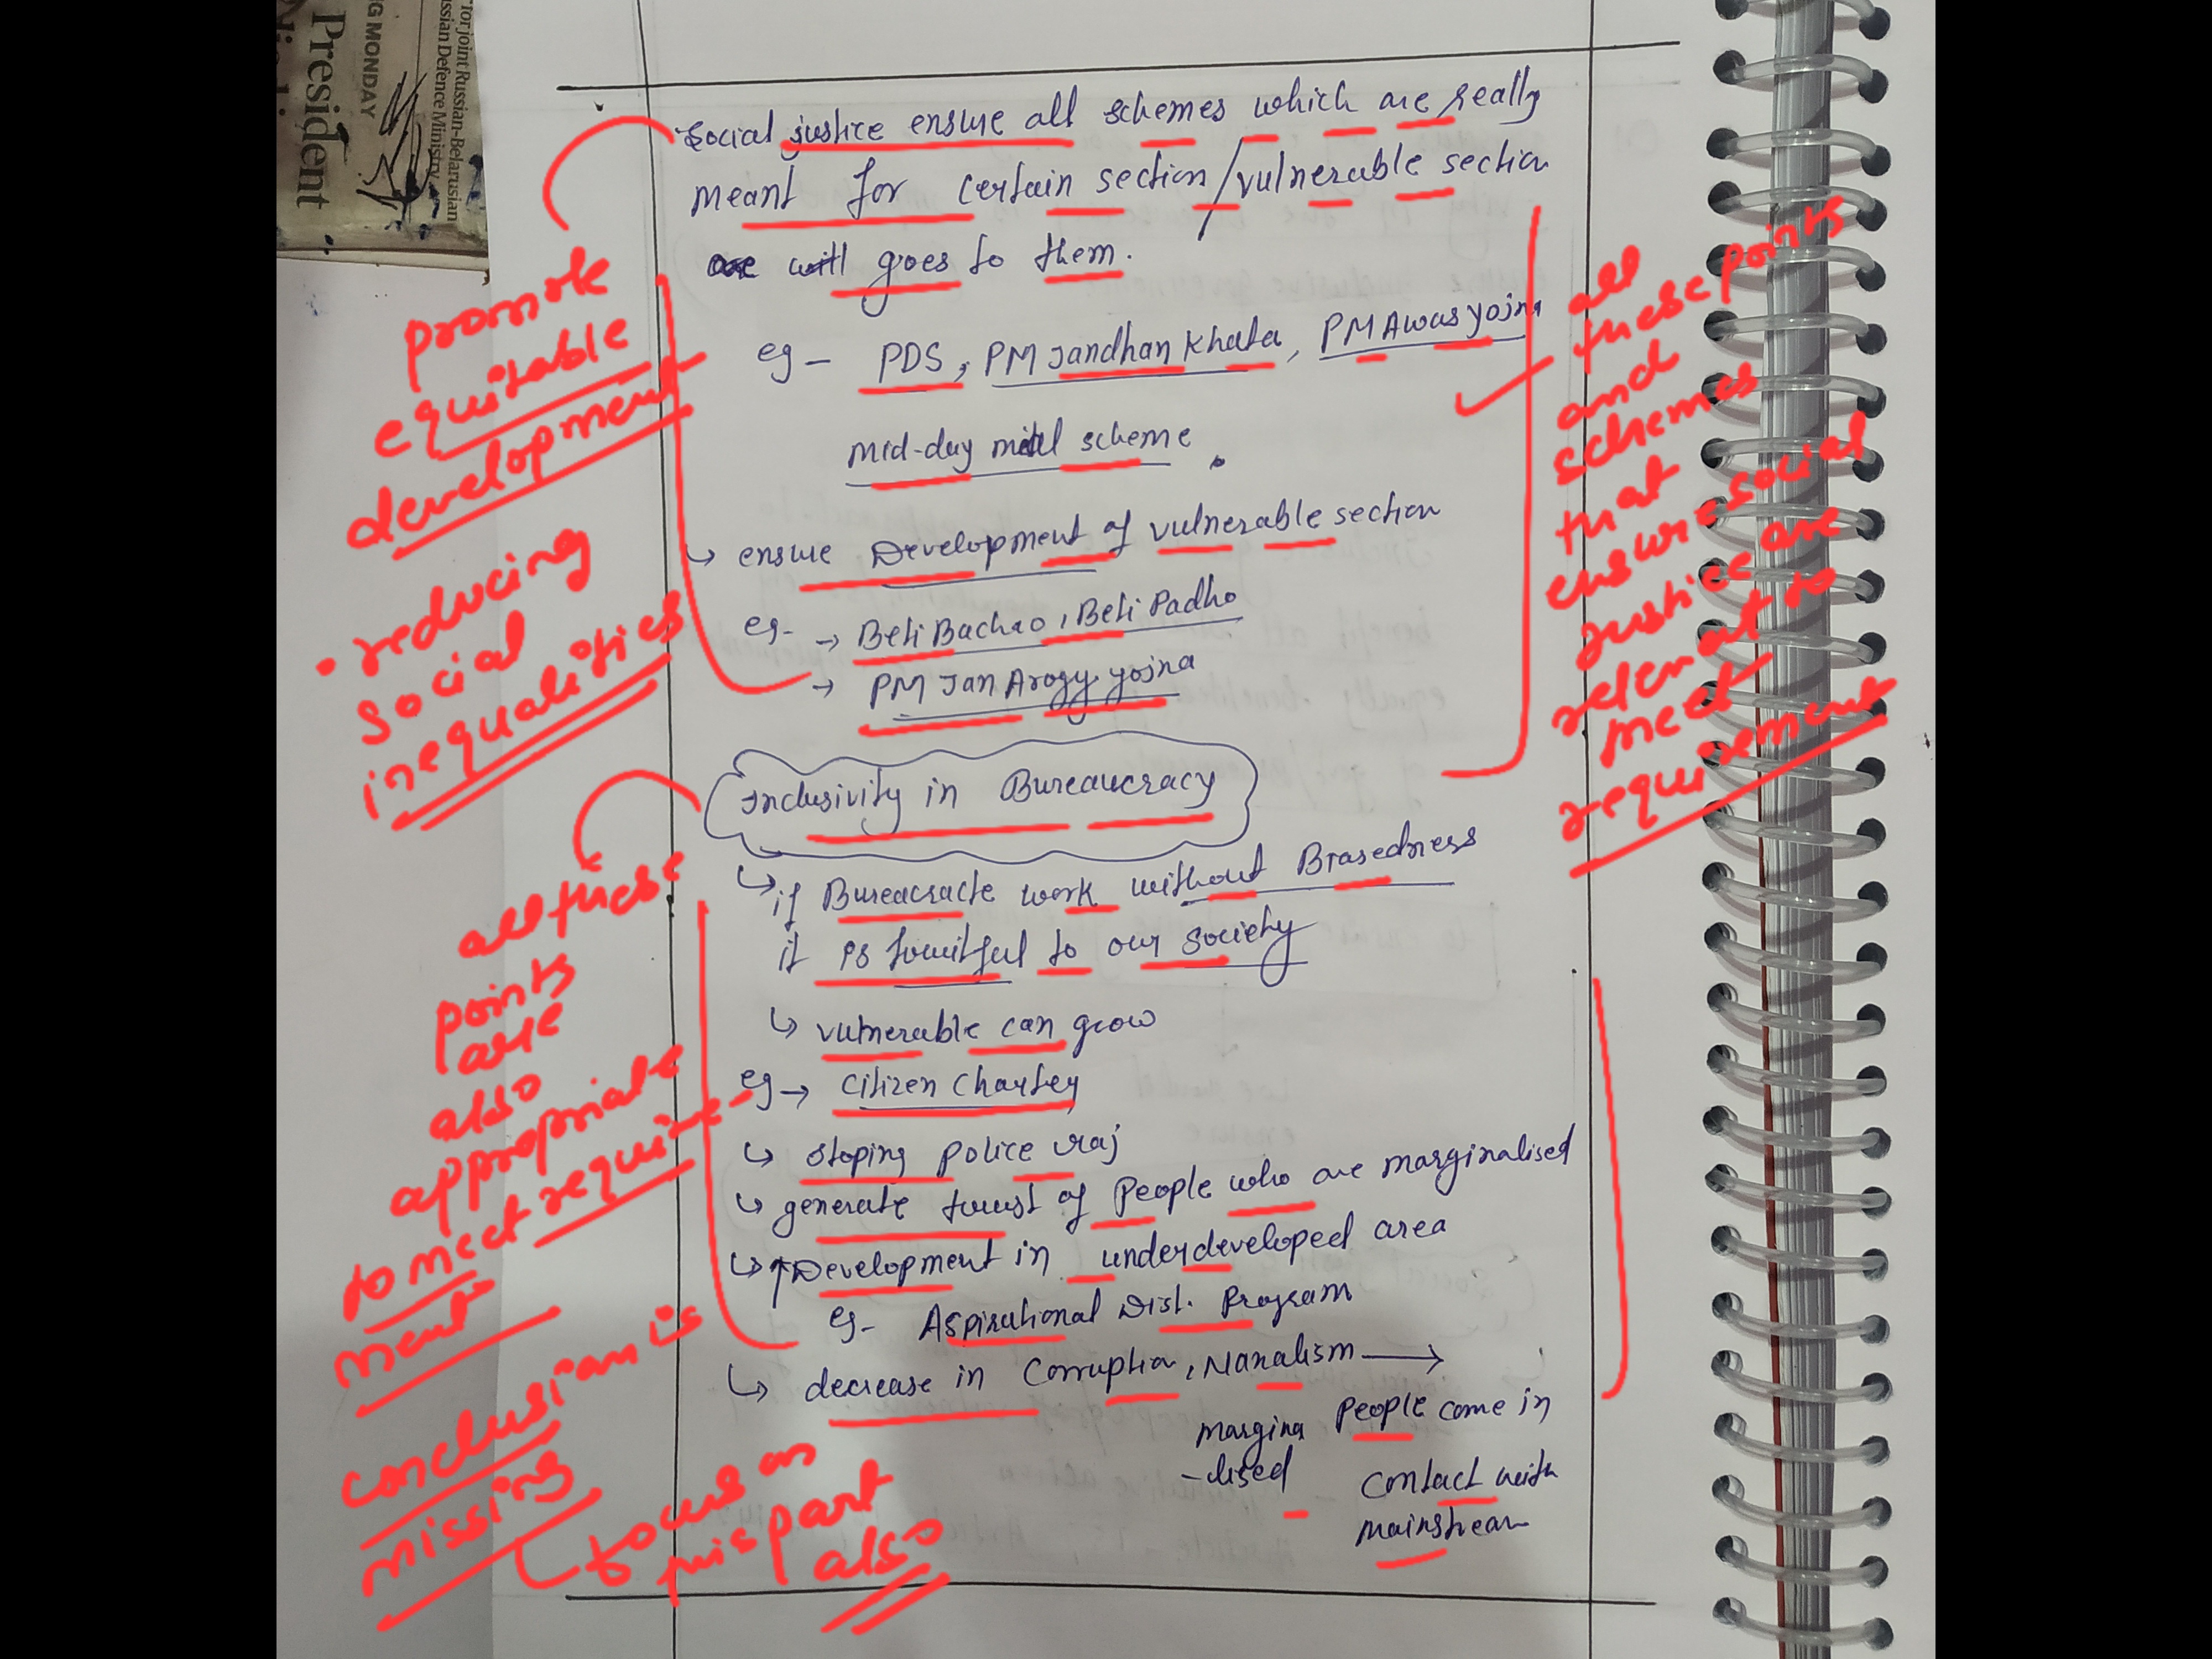 for joint Russian-Belarusian
ssian Defence Ministry
G MONDAY
President
Social justice ensure all schemes which are really
meant for certain section/vulnerable section
goes to them.
eg - PDS, PM Jandhan Khata, PM Awas yojna
Mid-day meal scheme.
↳ ensure Development of vulnerable section
eg- → Beti Bachao, Beti Padho
→ PM Jan Arogy yojna
Inclusivity in Bureaucracy
↳ if Bureacracte work without Biasedness
it is fruitful to our society
↳ vulnerable can grow
eg → Citizen Charter
↳ stoping police raj
↳ generate trust of People who are marginalised
↳ ↑ Development in underdeveloped area
eg- Aspirational Dist. Program
↳ decrease in Corruption, Naxalism →
margina
-lised
People come in
contact with
mainstream
promote
equitable
development
• reducing
social
inequalities
all these
points
are
also
appropriate
to meet require-
ment
conclusion is
missing
focus on
this part
also
all
these points
and
schemes
that
ensure social
justice are
relevant to
meet
requirement